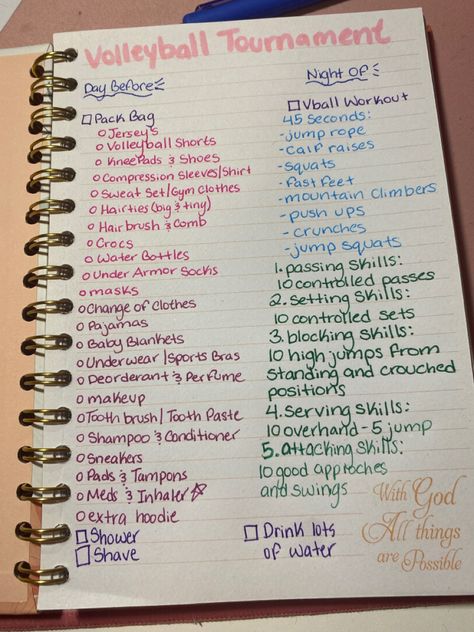 Volleyball Tournament
Day Before
□ Pack Bag
o Jersey's
o Volleyball Shorts
o KneePads & Shoes
o Compression Sleeves/Shirt
o Sweat Set/Gym Clothes
o Hairties (big & tiny)
o Hair brush & Comb
o Crocs
o Water Bottles
o Under Armor Socks
o masks
o Change of Clothes
o Pajamas
o Baby Blankets
o Underwear/Sports Bras
o Deorderant & Perfume
o makeup
o Tooth brush/Tooth Paste
o Shampoo & Conditioner
o Sneakers
o Pads & Tampons
o Meds & Inhaler ☆
o extra hoodie
□ Shower
□ Shave
Night Of
□ Vball Workout
45 Seconds:
-jump rope
-calf raises
-squats
-fast feet
-mountain climbers
-push ups
-crunches
-jump squats
1. passing skills:
10 controlled passes
2. setting skills:
10 controlled sets
3. blocking skills:
10 high jumps from
standing and crouched
positions
4. serving skills:
10 overhand - 5 jump
5. attacking skills:
10 good approches
and swings
□ Drink lots
of water
With God
All things
are Possible